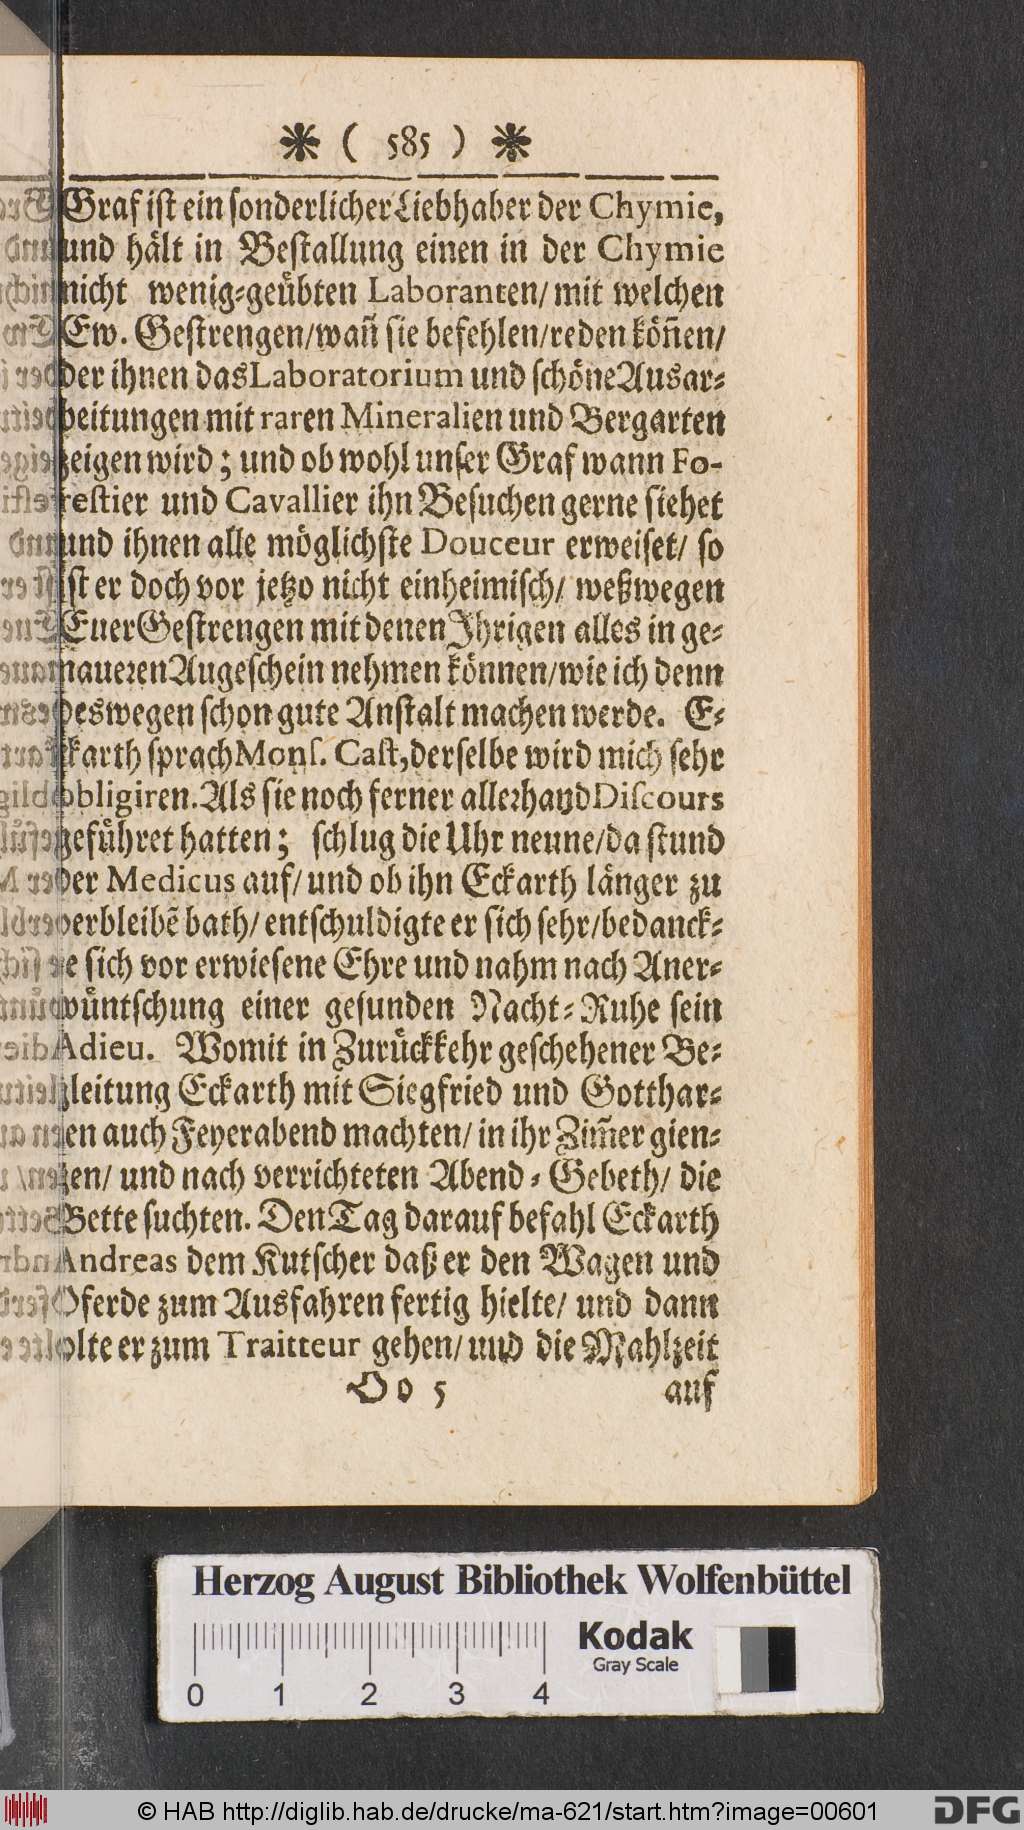 ❋ ( 585 ) ❋
Graf ist ein sonderlicher Liebhaber der Chymie,
und hält in Bestallung einen in der Chymie
nicht wenig-geübten Laboranten/ mit welchen
Ew. Gestrengen/ wañ sie befehlen/ reden köñen/
der ihnen das Laboratorium und schöne Ausar-
beitungen mit raren Mineralien und Bergarten
zeigen wird; und ob wohl unser Graf wann Fo-
restier und Cavallier ihn Besuchen gerne siehet
und ihnen alle möglichste Douceur erweiset/ so
ist er doch vor jetzo nicht einheimisch/ weßwegen
Euer Gestrengen mit denen Ihrigen alles in ge-
naueren Augeschein nehmen können/ wie ich denn
deswegen schon gute Anstalt machen werde. E-
ckarth sprach Mons. Cast, derselbe wird mich sehr
obbligiren. Als sie noch ferner allerhand Discours
geführet hatten; schlug die Uhr neune/ da stund
der Medicus auf/ und ob ihn Eckarth länger zu
verbleibẽ bath/ entschuldigte er sich sehr/ bedanck-
te sich vor erwiesene Ehre und nahm nach Aner-
wüntschung einer gesunden Nacht-Ruhe sein
Adieu. Womit in Zurückkehr geschehener Be-
gleitung Eckarth mit Siegfried und Gotthar-
en auch Feyerabend machten/ in ihr Zim̃er gien-
gen/ und nach verrichteten Abend-Gebeth/ die
Bette suchten. Den Tag darauf befahl Eckarth
Andreas dem Kutscher daß er den Wagen und
Pferde zum Ausfahren fertig hielte/ und dann
olte er zum Traitteur gehen/ und die Mahlzeit
Oo 5 auf
Herzog August Bibliothek Wolfenbüttel
Kodak
Gray Scale
0 1 2 3 4
© HAB http://diglib.hab.de/drucke/ma-621/start.htm?image=00601
DFG